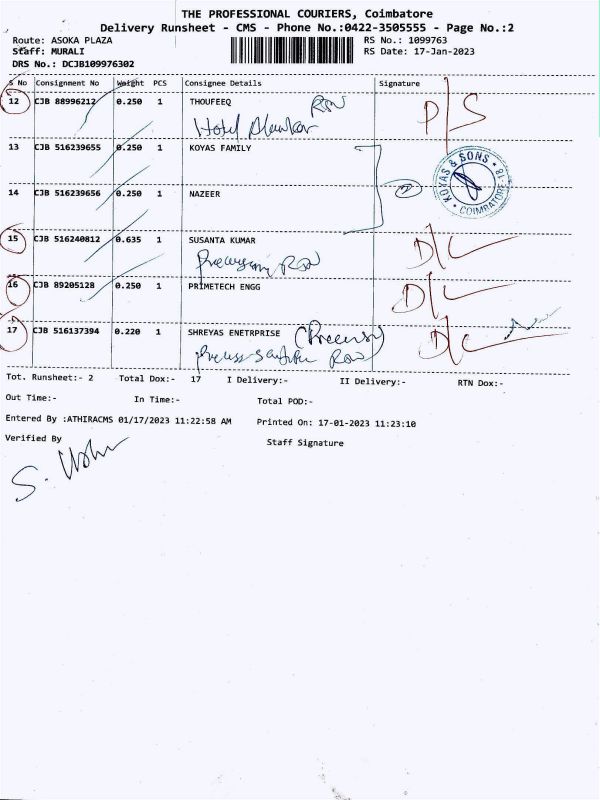 THE PROFESSIONAL COURIERS, Coimbatore
Delivery Runsheet - CMS - Phone No.:0422-3505555 - Page No.:2
Route: ASOKA PLAZA RS No.: 1099763
Staff: MURALI RS Date: 17-Jan-2023
DRS No.: DCJB109976302
S No Consignment No Weight PCS Consignee Details Signature
12 CJB 88996212 0.250 1 THOUFEEQ P/S
Hotel
13 CJB 516239655 0.250 1 KOYAS FAMILY
KOYAS & SONS COIMBATORE-18
14 CJB 516239656 0.250 1 NAZEER 2
15 CJB 516240812 0.635 1 SUSANTA KUMAR D/C
16 CJB 89205128 0.250 1 PRIMETECH ENGG D/C
17 CJB 516137394 0.220 1 SHREYAS ENETRPRISE D/C
Tot. Runsheet:- 2 Total Dox:- 17 I Delivery:- II Delivery:- RTN Dox:-
Out Time:- In Time:- Total POD:-
Entered By :ATHIRACMS 01/17/2023 11:22:58 AM Printed On: 17-01-2023 11:23:10
Verified By Staff Signature